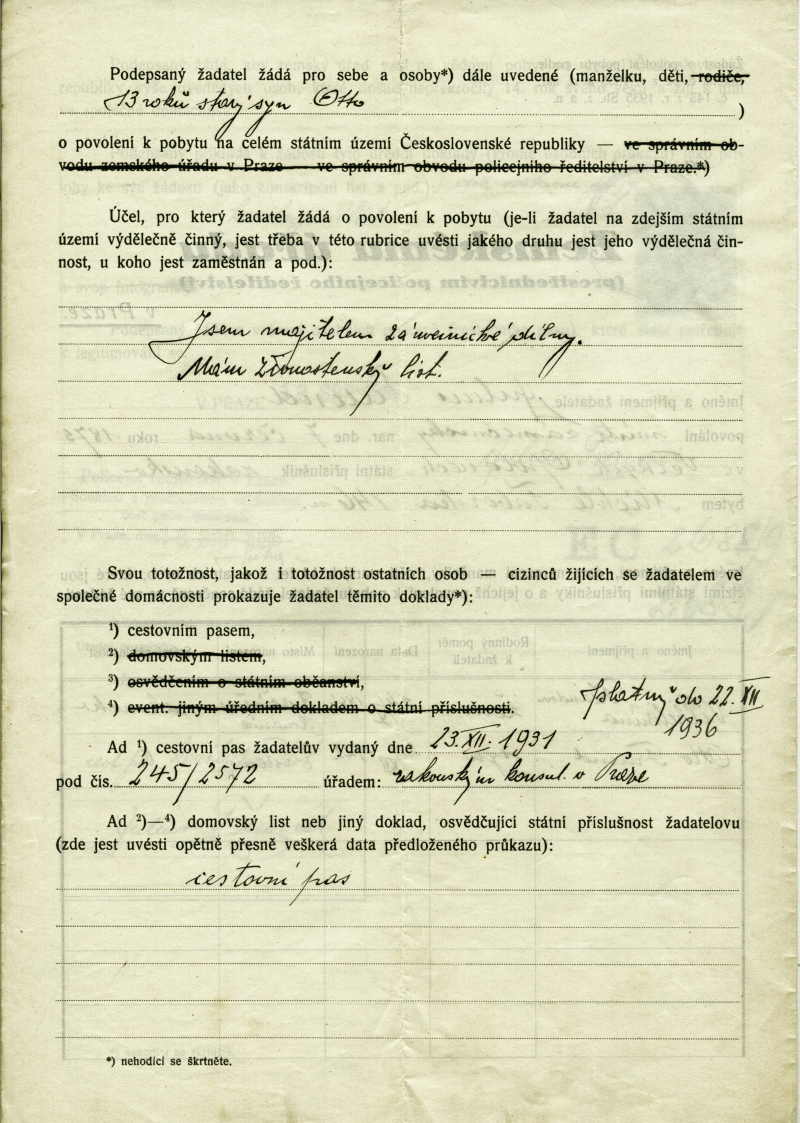 Podepsaný žadatel žádá pro sebe a osoby*) dále uvedené (manželku, děti, rodiče,
13 roků starý syn Otto )
o povolení k pobytu na celém státním území Československé republiky — ve správním ob-
vodu zemského úřadu v Praze — ve správním obvodu policejního ředitelství v Praze.*)
Účel, pro který žadatel žádá o povolení k pobytu (je-li žadatel na zdejším státním
území výdělečně činný, jest třeba v této rubrice uvésti jakého druhu jest jeho výdělečná čin-
nost, u koho jest zaměstnán a pod.):
Jsem majitelem zámečnické dílny.
Mám živnostenský list.
Svou totožnost, jakož i totožnost ostatních osob — cizinců žijících se žadatelem ve
společné domácnosti prokazuje žadatel těmito doklady*):
¹) cestovním pasem,
²) domovským listem,
³) osvědčením o státním občanství,
⁴) event. jiným úředním dokladem o státní příslušnosti.
platný do 22. XII
1936
Ad ¹) cestovní pas žadatelův vydaný dne 23. XII. 1931
pod čís. 245/2572 úřadem: rakouským konsul. v Praze
Ad ²)—⁴) domovský list neb jiný doklad, osvědčující státní příslušnost žadatelovu
(zde jest uvésti opětně přesně veškerá data předloženého průkazu):
cestovní pas
*) nehodící se škrtněte.